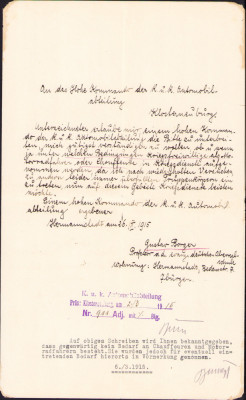 An das Hohe Kommando der K. u. K. Automobil-
abteilung
Klosterneuburg.
Unterzeichneter erlaubt sich einem hohen Komman-
do der K. u. K. Automobilabteilung die Bitte zu unterbrei-
ten, mich gütigst verständigen zu wollen ob u. wenn
ja unter welchen Bedingungen Kriegsfreiwillige als Mo-
torradfahrer oder Chauffeure in Kriegsdienst aufge-
nommen werden, da ich nach wiederholten Versuchen
zu andern
zu treten nun auf diesem Gebiete Kriegsdienste leisten
möchte.
Einem hohen Kommando der K. u. K. Automobil-
abteilung ergebener
Hermannstadt am 1915
Gustav Borger
Professor a. d. evang. deutschen
Wohnung: Hermannstadt,
K. u. k. Automobilabteilung
Präs. Klosterneuburg am 1915
Nr. Adj.
Auf obiges Schreiben wird Ihnen bekanntgegeben,
dass gegenwärtig kein Bedarf an Chauffeuren und Motor-
radfahrern besteht. Sie wurden jedoch für eventuell ein-
tretenden Bedarf hierorts in Vormerkung genommen.